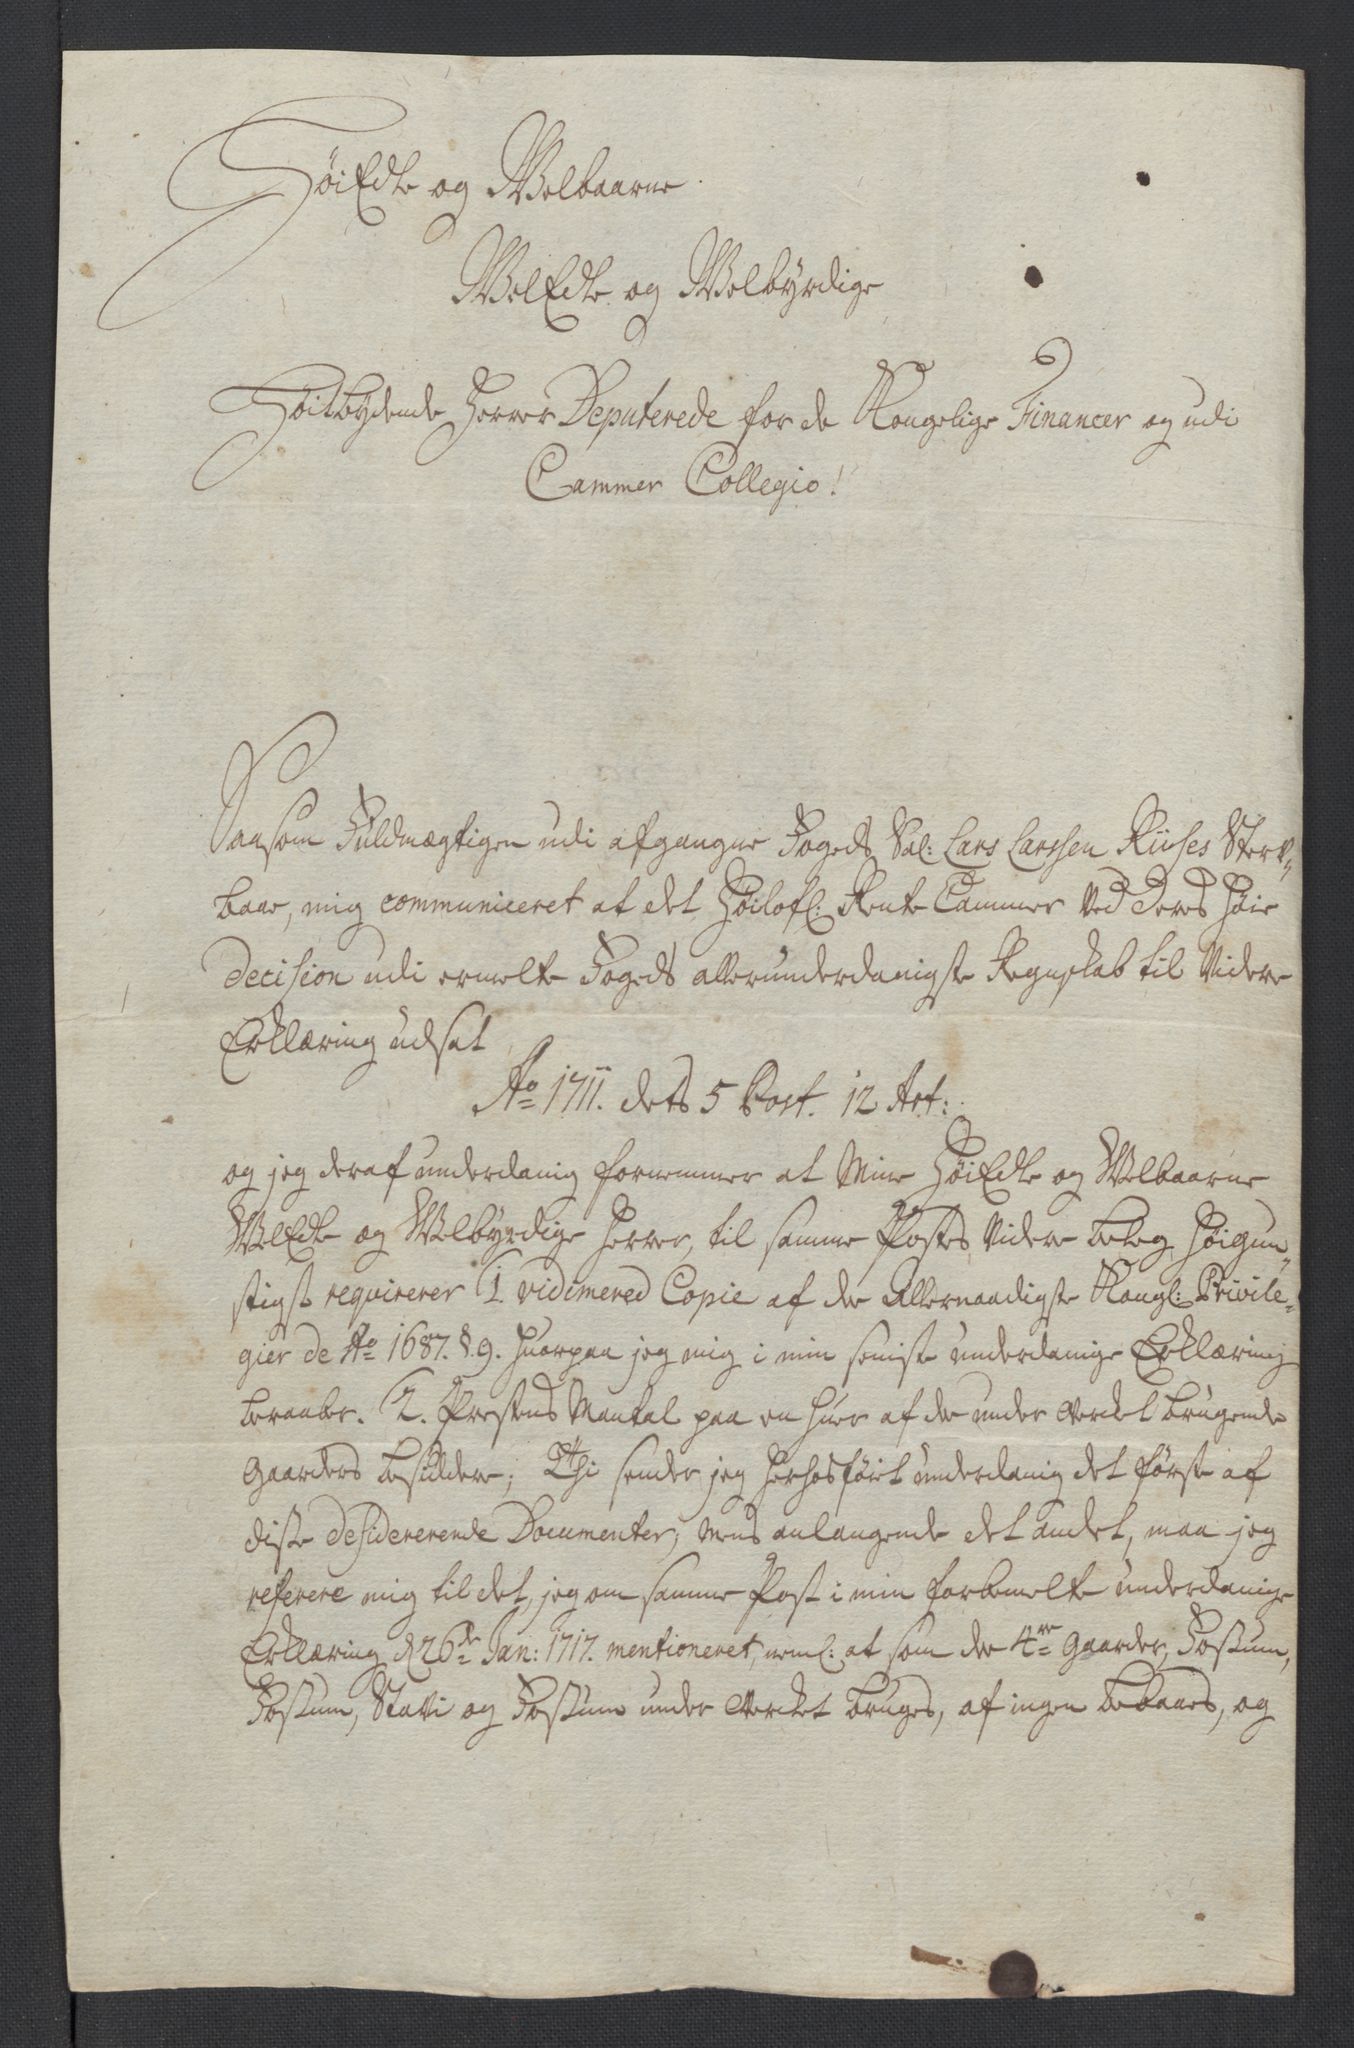 HöiEdle og Welbaarne
WelEdle og Welbÿrdige
Höitbÿdende Herrer Deputerede for de Kongelige Financer og udi
Cammer Collegio!
Saasom Fuldmægtigen udi afgangne Fogeds Sal: Lars Larssen Riises Sterv„
boe, mig communiceret at det Höilofl: Rente Cammer Ved Deres Höie
Decision udi ermelte Fogeds allerunderdanigste Regnskab til Videre
Erklæring udsat
Ao 1711. dets 5 Post. 12 Art:
og jeg deraf underdanig fornemmer at Mine HöiEdle og Welbaarne
WelEdle og Welbÿrdige Herrer, til samme Postes Videre beleg Höigun„
stigst requirerer 1 vidimered Copie af de Allernaadigste Kongl: Privile„
gier de Ao 1687. §. 9. huorpaa jeg mig i min seniste underdanige Erklæring
beraaber. 2. Præstens Mantal paa en huer af de under Verket brugende
Gaarders besiddere; Thi sender jeg herhosföiet underdanig det förste af
diste desidererende Documenter; Mens anlangende det andet, maa jeg
referere mig til det, jeg om samme Post i min forbemelte underdanige
Erklæring d 26de Jan: 1717. mentioneret, neml: at som de 4re Gaarder, Fossum,
Fossum, Stavi og Fossum under Verket bruges, af ingen beboes, og